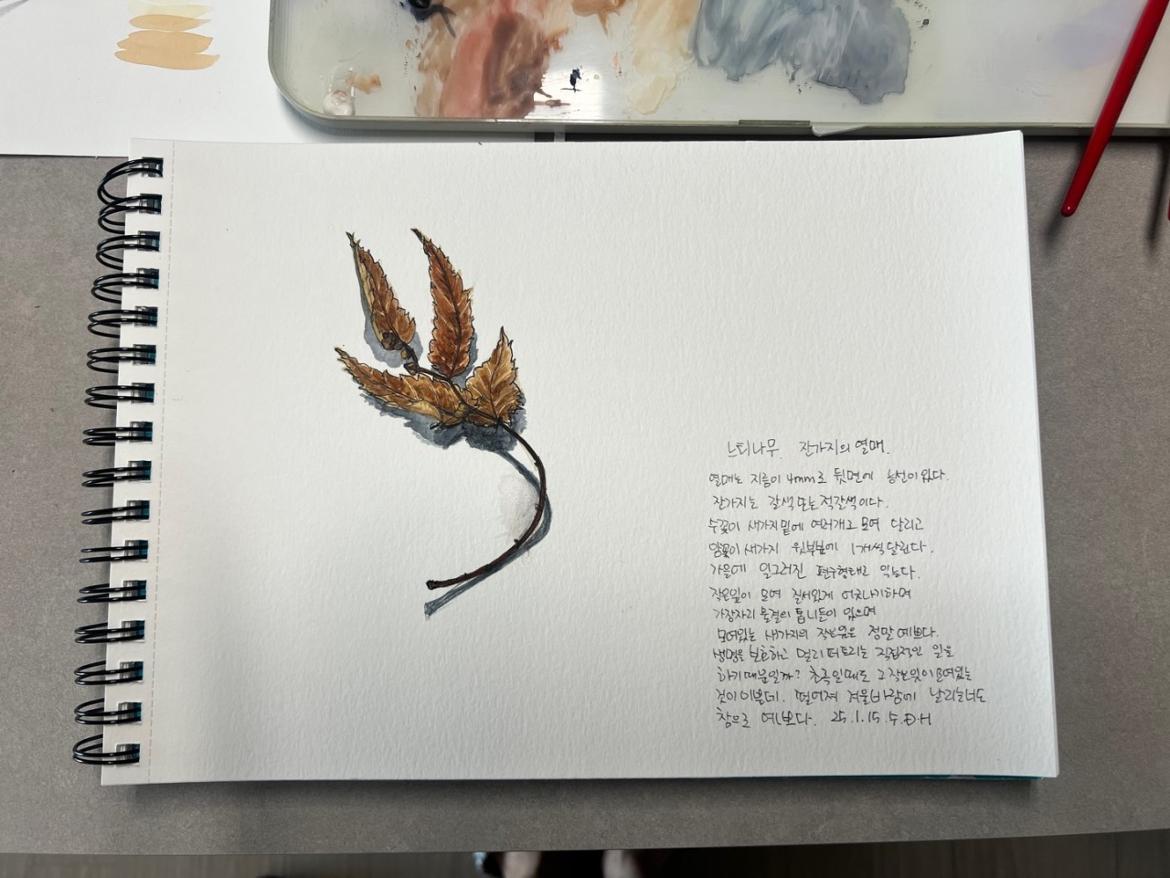 느티나무 잔가지의 열매.
열매는 지름이 4mm로 뒷면에 능선이 있다.
잔가지는 갈색 또는 적갈색이다.
수꽃이 새가지 밑에 여러개로 모여 달리고
암꽃이 새가지 윗부분에 1개씩 달린다.
가을에 일그러진 편구형태로 익는다.
작은잎이 모여 질서있게 어긋나기하며
가장자리 물결의 톱니들이 있으며
모여있는 새가지의 작은잎은 정말 예쁘다.
생명을 보호하고 멀리 퍼트리는 직접적인 일을
하기 때문일까? 초록일때도 그 작은잎이 모여있는
것이 이쁜데. 떨어져 겨울바람에 날리는 너도
참으로 예쁘다. 25.1.15.수.DH